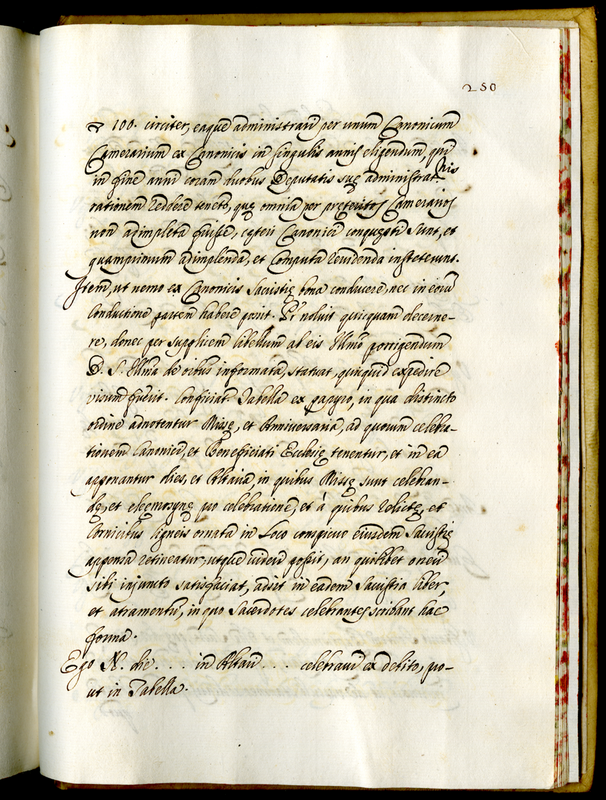 250
100. circiter, eaque administrari per unum Canonicum
Camerarium ex Canonicis in singulis annis eligendum, qui
in fine anni coram duobus Deputatis suę administrat
nis
rationem reddere teneto, quę omnia per pręteritos Camerarios
non adimpleta fuisse, cęteri Canonici conquęsti sunt, et
quamprimum adimplenda, et Computa revidenda institerunt.
Item, ut nemo ex Canonicis Sacristię bona conducere, nec in eorū
Conductione partem habere possit. Ill. noluit quicquam decerne-
re, donec per supplicem libellum ab eis Illmo porrigendum
D. S. Illma de oibus informata, statuat, quicquid expedire
visum fuerit. Conficiat Tabella ex papyro, in qua distincto
ordine adnotentur Missę, et Anniversaria, ad quorum celebra-
tionem Canonici, et Beneficiati Ecclesię tenentur, et in ea
apponantur dies, et Altaria, in quibus Missę sunt celebran-
dę, et eleemosynę pro celebratione, et à quibus relictę, et
Cornicibus ligneis ornata in Loco conspicuo eiusdem Sacristię
appensa retineatur, utque videri possit, an quilibet oneri
sibi iniuncto satisfaciat, adsit in eadem Sacristia liber,
et atramentū, in quo Sacerdotes celebrantes scribant hac
forma.
Ego N. die .... in Altari .... celebravi ex debito, pro-
ut in Tabella.